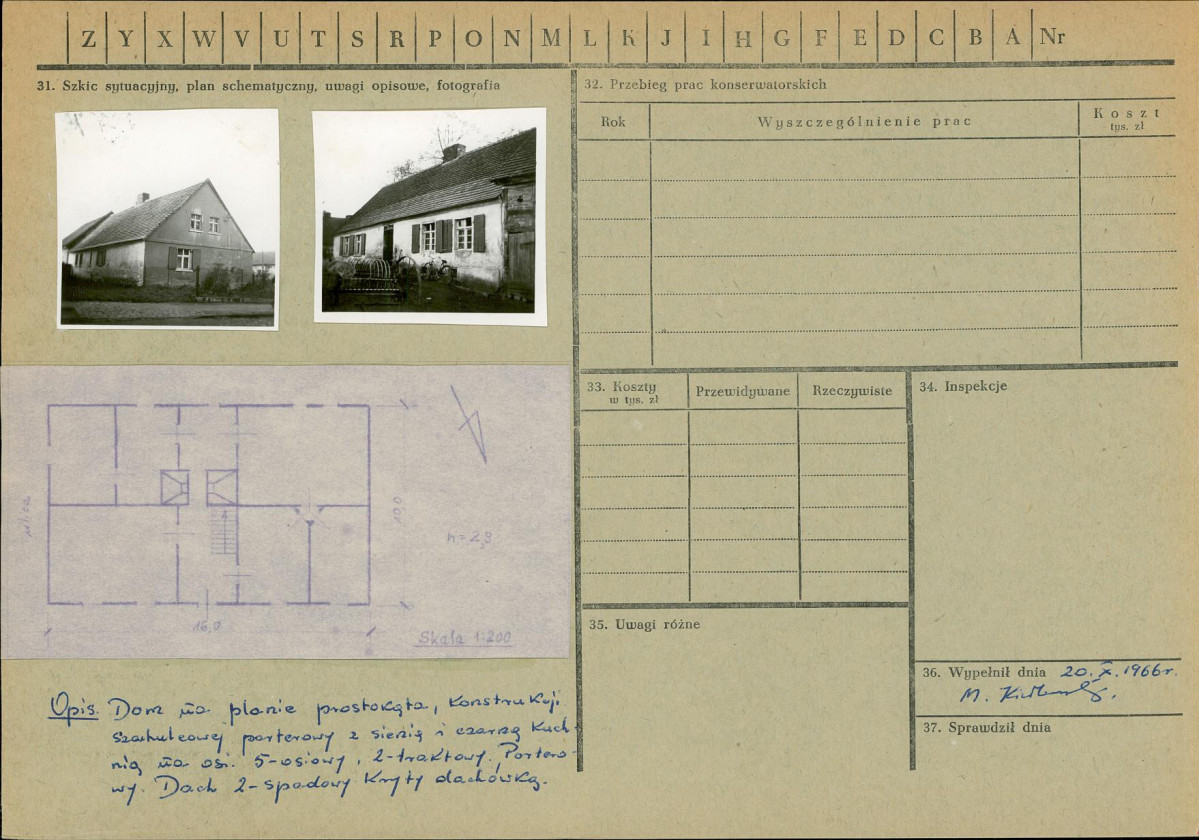 Z Y X W V U T S R P O N M L K J I H G F E D C B A Nr
31. Szkic sytuacyjny, plan schematyczny, uwagi opisowe, fotografia
ulica
10,0
h = 2,8
16,0
Skala 1:200
Opis. Dom na planie prostokąta, konstrukcji
szachulcowej parterowy z sienią i czarną kuch-
nią na osi. 5-osiowy, 2-traktowy. Partero-
wy. Dach 2-spadowy kryty dachówką.
32. Przebieg prac konserwatorskich
Rok
Wyszczególnienie prac
Koszt
tys. zł
33. Koszty
w tys. zł
Przewidywane
Rzeczywiste
34. Inspekcje
35. Uwagi różne
36. Wypełnił dnia 20.X.1966r.
M.
37. Sprawdził dnia